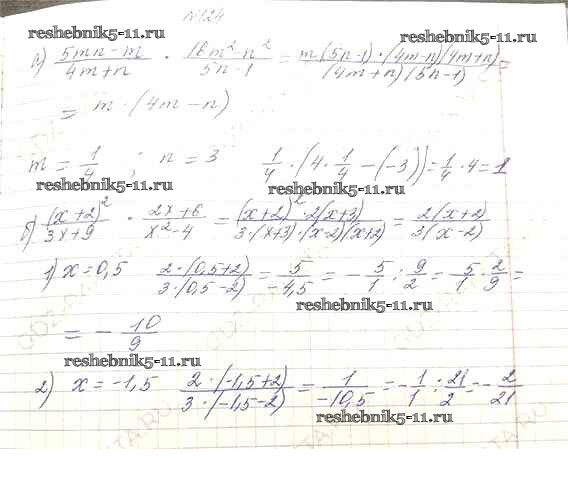 N 124
reshebnik5-11.ru reshebnik5-11.ru
а) (5mn - m)/(4m + n) · (16m² - n²)/(5n - 1) = (m(5n-1) · (4m-n)(4m+n))/((4m+n)(5n-1)) =
= m · (4m - n)
reshebnik5-11.ru
m = 1/4 ; n = 3 1/4 · (4 · 1/4 - (-3)) = 1/4 · 4 = 1
reshebnik5-11.ru reshebnik5-11.ru
б) (x+2)²/(3x+9) · (2x+6)/(x²-4) = ((x+2)² · 2(x+3))/(3·(x+3)·(x-2)(x+2)) = 2(x+2)/(3(x-2))
1) x = 0,5 (2·(0,5+2))/(3·(0,5-2)) = 5/(-4,5) = - 5/1 : 9/2 = - 5/1 · 2/9 =
reshebnik5-11.ru
= - 10/9
reshebnik5-11.ru
2) x = -1,5 (2·(-1,5+2))/(3·(-1,5-2)) = 1/(-10,5) = - 1/1 : 21/2 = - 2/21
reshebnik5-11.ru